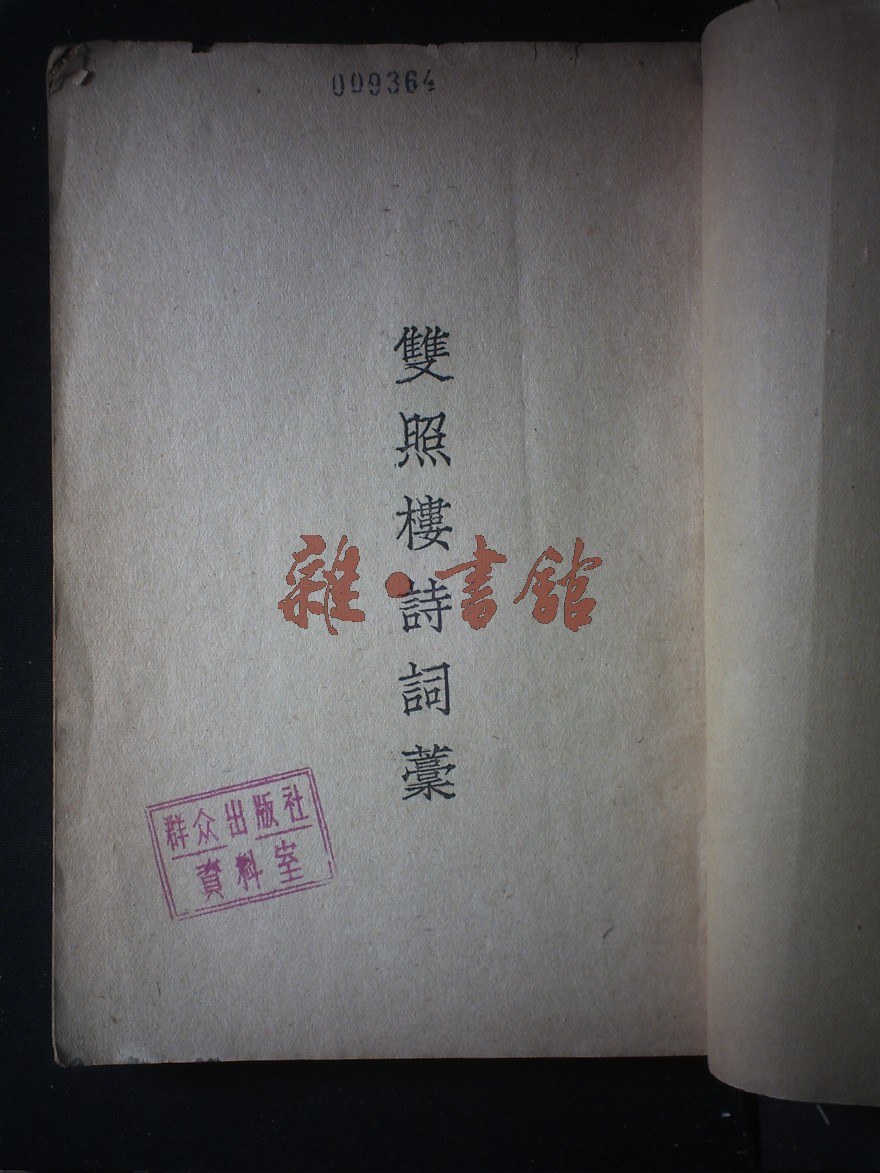 009364
雙照樓詩詞藳
雜·書舘
群众出版社
資料室